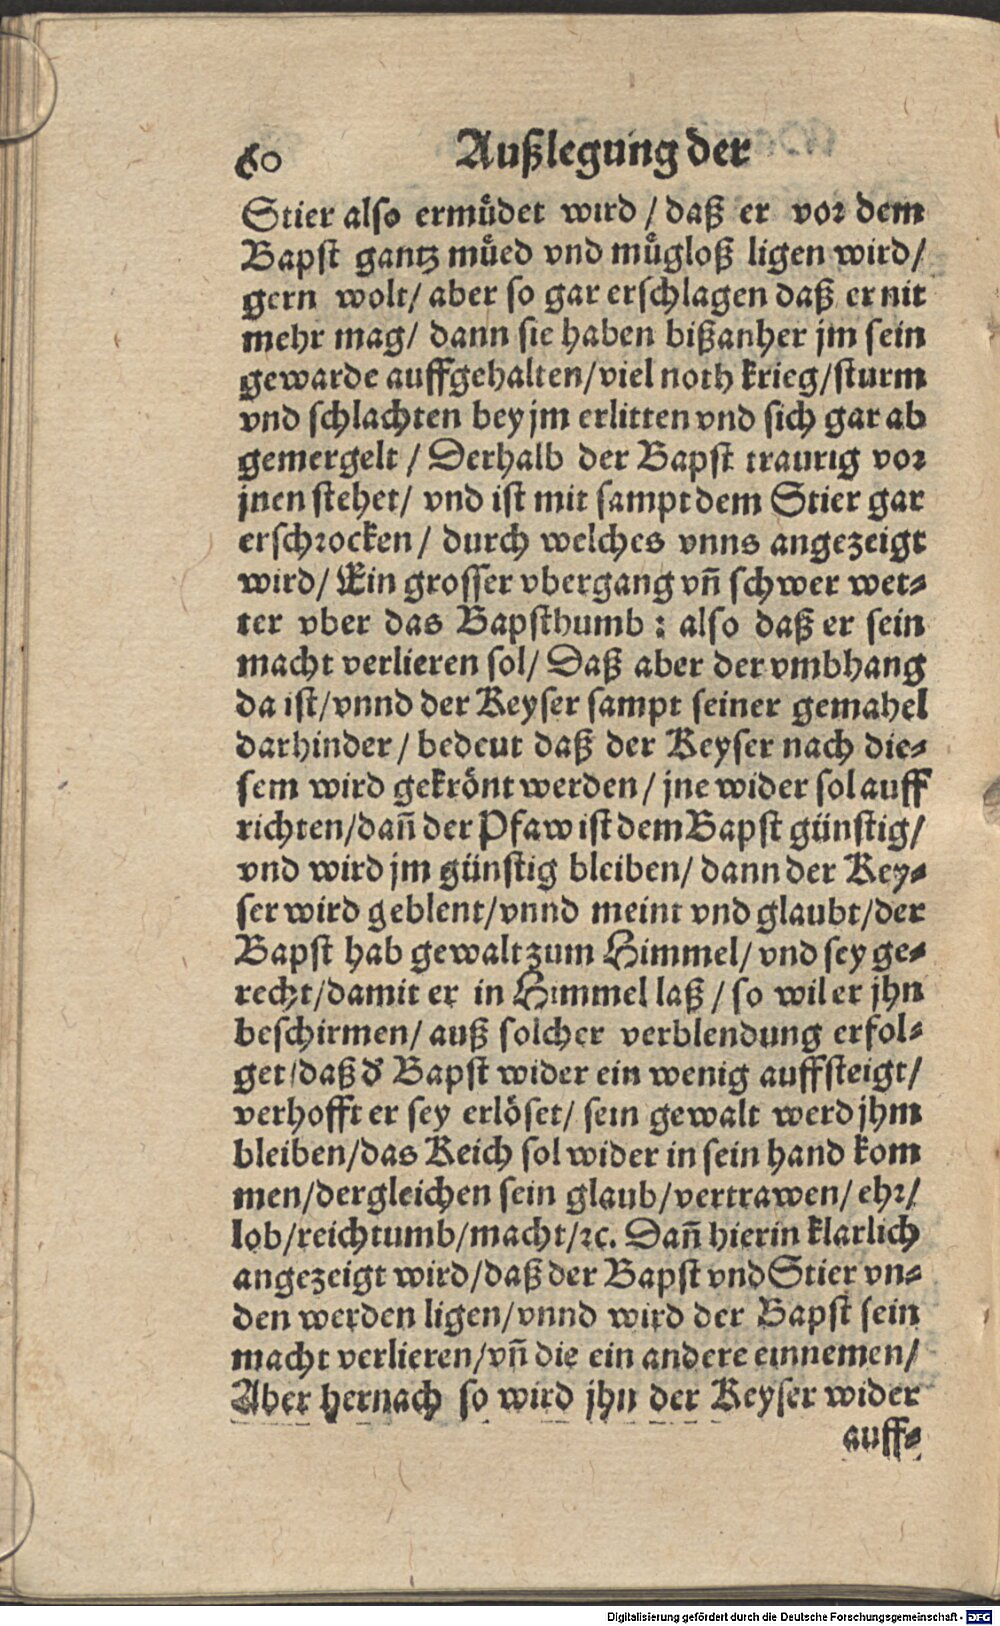 60 Außlegung der
Stier also ermuͤdet wird / daß er vor dem
Bapst gantz muͤed vnd muͤgloß ligen wird/
gern wolt/ aber so gar erschlagen daß er nit
mehr mag/ dann sie haben bißanher jm sein
gewarde auffgehalten/viel noth krieg/sturm
vnd schlachten bey jm erlitten vnd sich gar ab
gemergelt / Derhalb der Bapst traurig vor
jnen stehet/ vnd ist mit sampt dem Stier gar
erschrocken / durch welches vnns angezeigt
wird/ Ein grosser vbergang vn̄ schwer wet-
ter vber das Bapsthumb : also daß er sein
macht verlieren sol/ Daß aber der vmbhang
da ist/vnnd der Keyser sampt seiner gemahel
darhinder / bedeut daß der Keyser nach die-
sem wird gekrönt werden / jne wider sol auff
richten/dan̄ der Pfaw ist dem Bapst günstig/
vnd wird jm günstig bleiben/ dann der Key-
ser wird geblent/vnnd meint vnd glaubt/der
Bapst hab gewalt zum Himmel/ vnd sey ge-
recht/damit er in Himmel laß / so wil er jhn
beschirmen/ auß solcher verblendung erfol-
get/daß d' Bapst wider ein wenig auffsteigt/
verhofft er sey erlöset/ sein gewalt werd jhm
bleiben/das Reich sol wider in sein hand kom
men/dergleichen sein glaub/vertrawen/ ehr/
lob/reichtumb/macht/ꝛc. Dan̄ hierin klarlich
angezeigt wird/daß der Bapst vnd Stier vn-
den werden ligen/vnnd wird der Bapst sein
macht verlieren/vn̄ die ein andere einnemen/
Aber hernach so wird jhn der Keyser wider
auff-
Digitalisierung gefördert durch die Deutsche Forschungsgemeinschaft - DFG